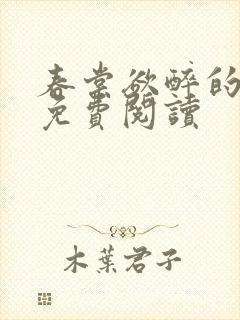 春棠欲醉的
免費閱讀
木葉君子